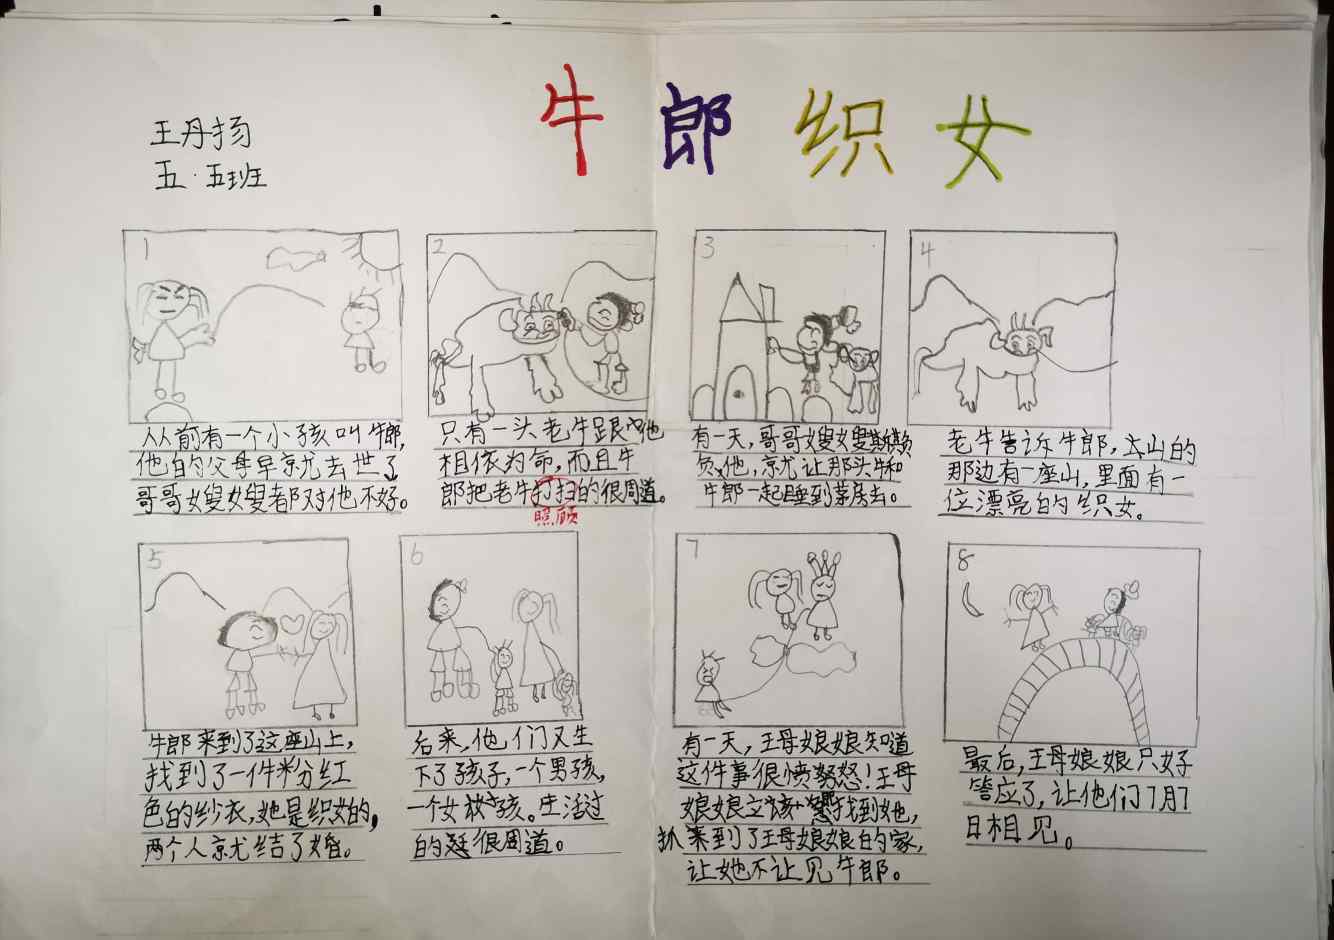 牛郎织女
王丹扬
五·五班
1
从前有一个小孩叫牛郎,
他的父母早就去世了
哥哥嫂嫂都对他不好。
2
只有一头老牛跟他
相依为命,而且牛
郎把老牛打扫的很周道。
照顾
3
有一天,哥哥嫂嫂欺
负他,就让那头牛和
牛郎一起睡到茅房去。
4
老牛告诉牛郎,大山的
那边有一座山,里面有一
位漂亮的织女。
5
牛郎来到了这座山上,
找到了一件粉红
色的纱衣,她是织女的,
两个人就结了婚。
6
后来,他们又生
下了孩子,一个男孩,
一个女孩。生活过
的还很周道。
7
有一天,王母娘娘知道
这件事很愤怒!王母
娘娘立该找到她,
抓来到了王母娘娘的家,
让她不让见牛郎。
8
最后,王母娘娘只好
答应了,让他们7月7
日相见。